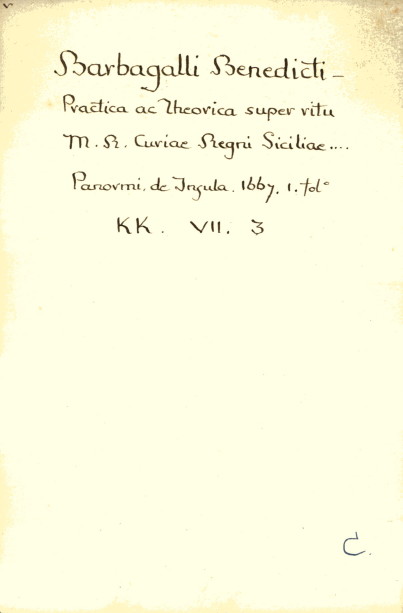 Barbagalli Benedicti –
Practica ac Theorica super ritu
M. R. Curiae Regni Siciliae....
Panormi, de Insula. 1667. 1. fol°
KK. VII. 3
C.